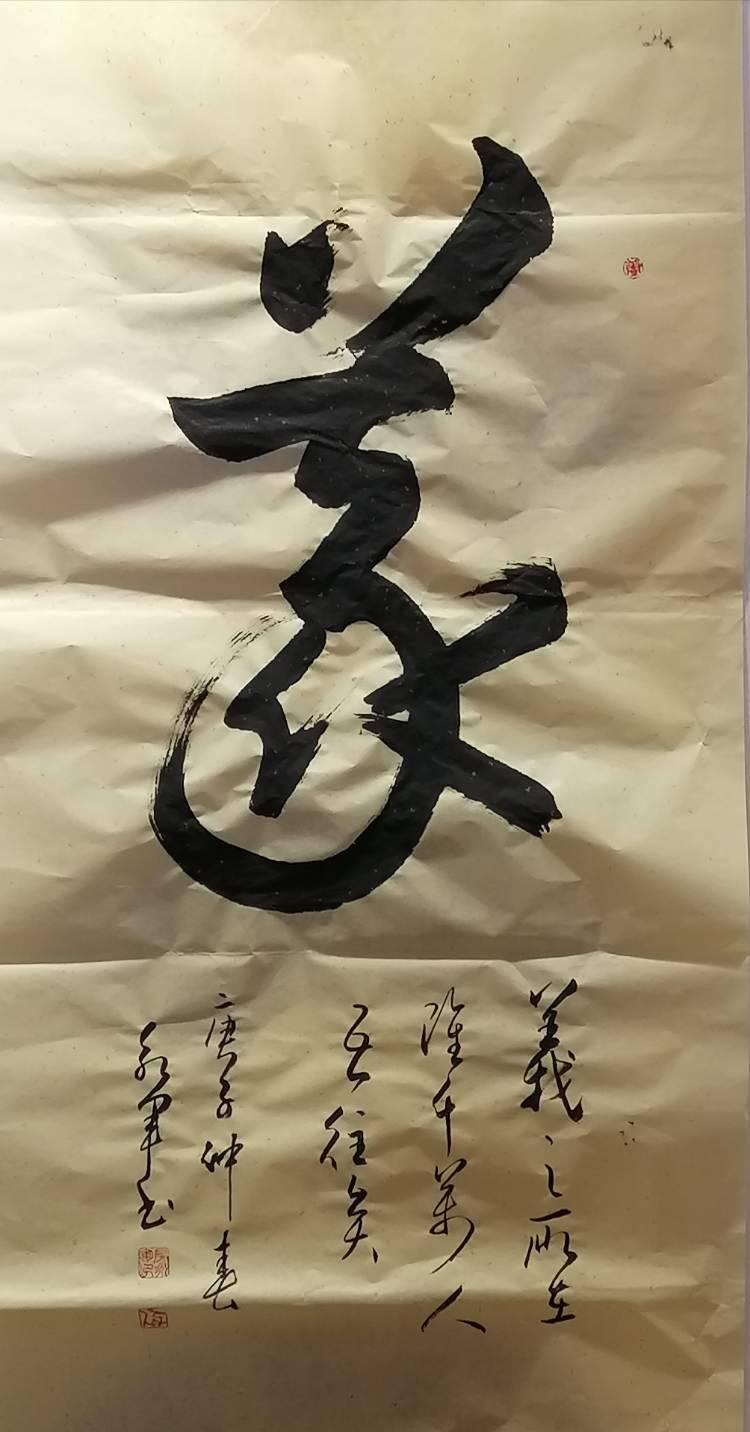 義
義之所在
雖千萬人
吾往矣
庚子仲春
永軍书